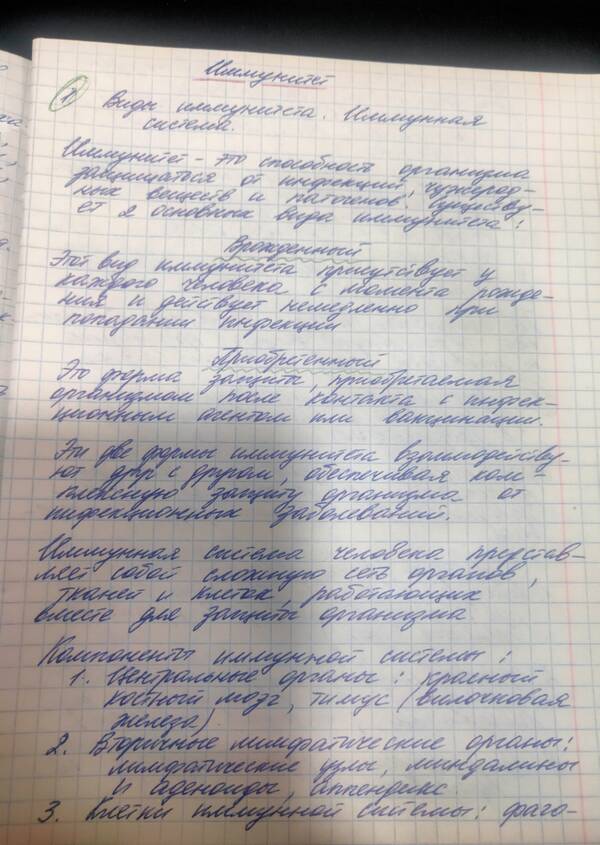 Иммунитет
1 Виды иммунитета. Иммунная
система.
Иммунитет - это способность организма
защищаться от инфекций, чужерод-
ных веществ и патогенов. Существу-
ет 2 основных вида иммунитета:
Врожденный
Этот вид иммунитета присутствует у
каждого человека с момента рожде-
ния и действует немедленно при
попадании инфекции
Приобретенный
Это форма защиты, приобретаемая
организмом после контакта с инфек-
ционным агентом или вакцинации.
Эти две формы иммунитета взаимодейству-
ют друг с другом, обеспечивая ком-
плексную защиту организма от
инфекционных заболеваний.
Иммунная система человека представ-
ляет собой сложную сеть органов,
тканей и клеток, работающих
вместе для защиты организма
Компоненты иммунной системы:
1. Центральные органы: красный
костный мозг, тимус (вилочковая
железа).
2. Вторичные лимфатические органы:
лимфатические узлы, миндалины
и аденоиды, аппендикс.
3. Клетки иммунной системы: фаго-